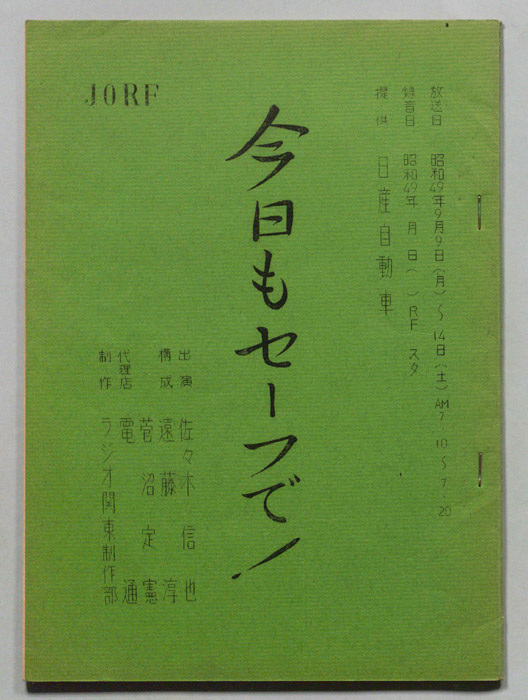 放送日 昭和49年9月9日(月)〜14日(土)AM7.10〜7.20
録音日 昭和49年 月 日( )RFスタ
提供 日産自動車
今日もセーフで!
JORF
出演 佐々木信也
構成 遠藤淳
菅沼定憲
代理店 電通
制作 ラジオ関東制作部